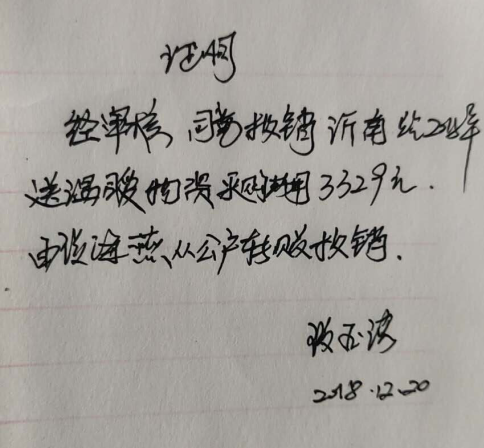 证明
经审核,同意报销沂南给2018年
送温暖物资采购费用3329元.
由 海燕从公户转账报销.
玉
2018.12.20